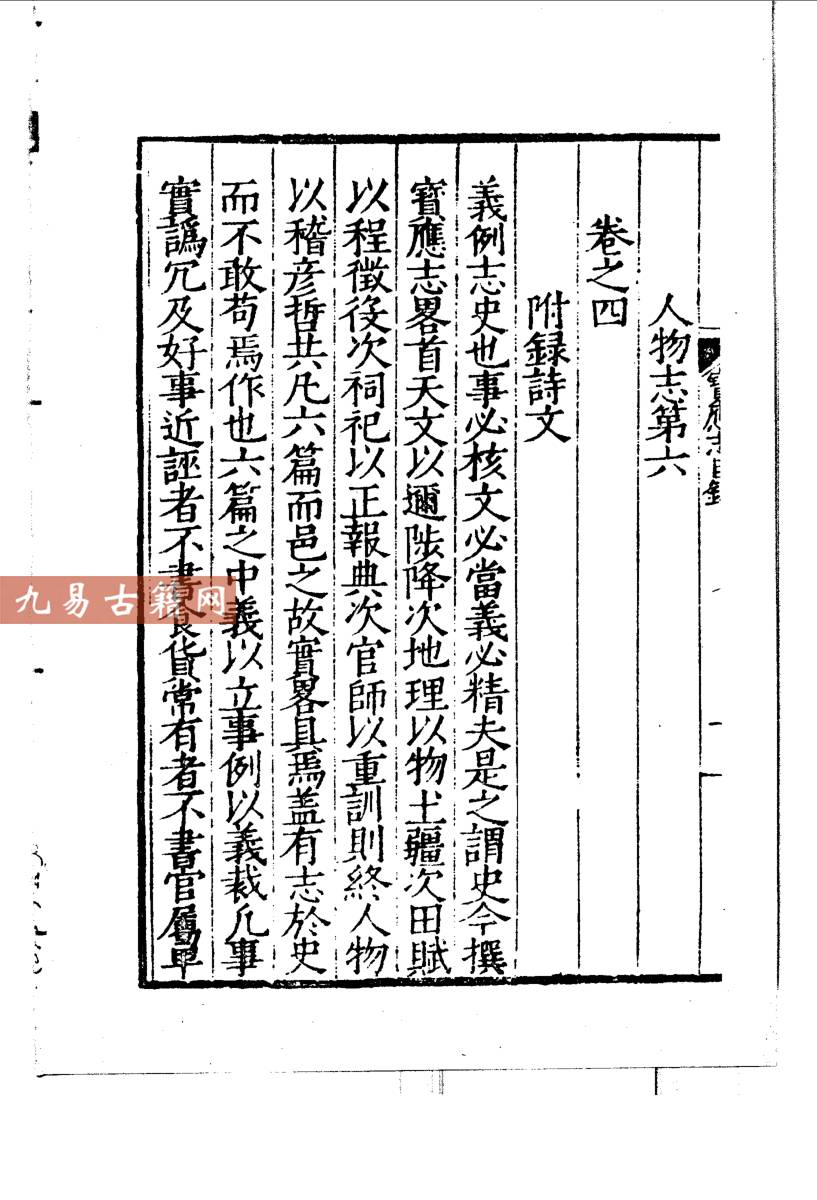 寳應志目錄
人物志第六
卷之四
附錄詩文
義例志史也事必核文必當義必精夫是之謂史今撰
寳應志畧首天文以邇陟降次地理以物土疆次田賦
以程徵役次祠祀以正報典次官師以重訓則終人物
以稽彦哲共凡六篇而邑之故實畧具焉盖有志於史
而不敢苟焉作也六篇之中義以立事例以義裁凡事
實譌冗及好事近誣者不書食貨常有者不書官屬卑
九易古籍网